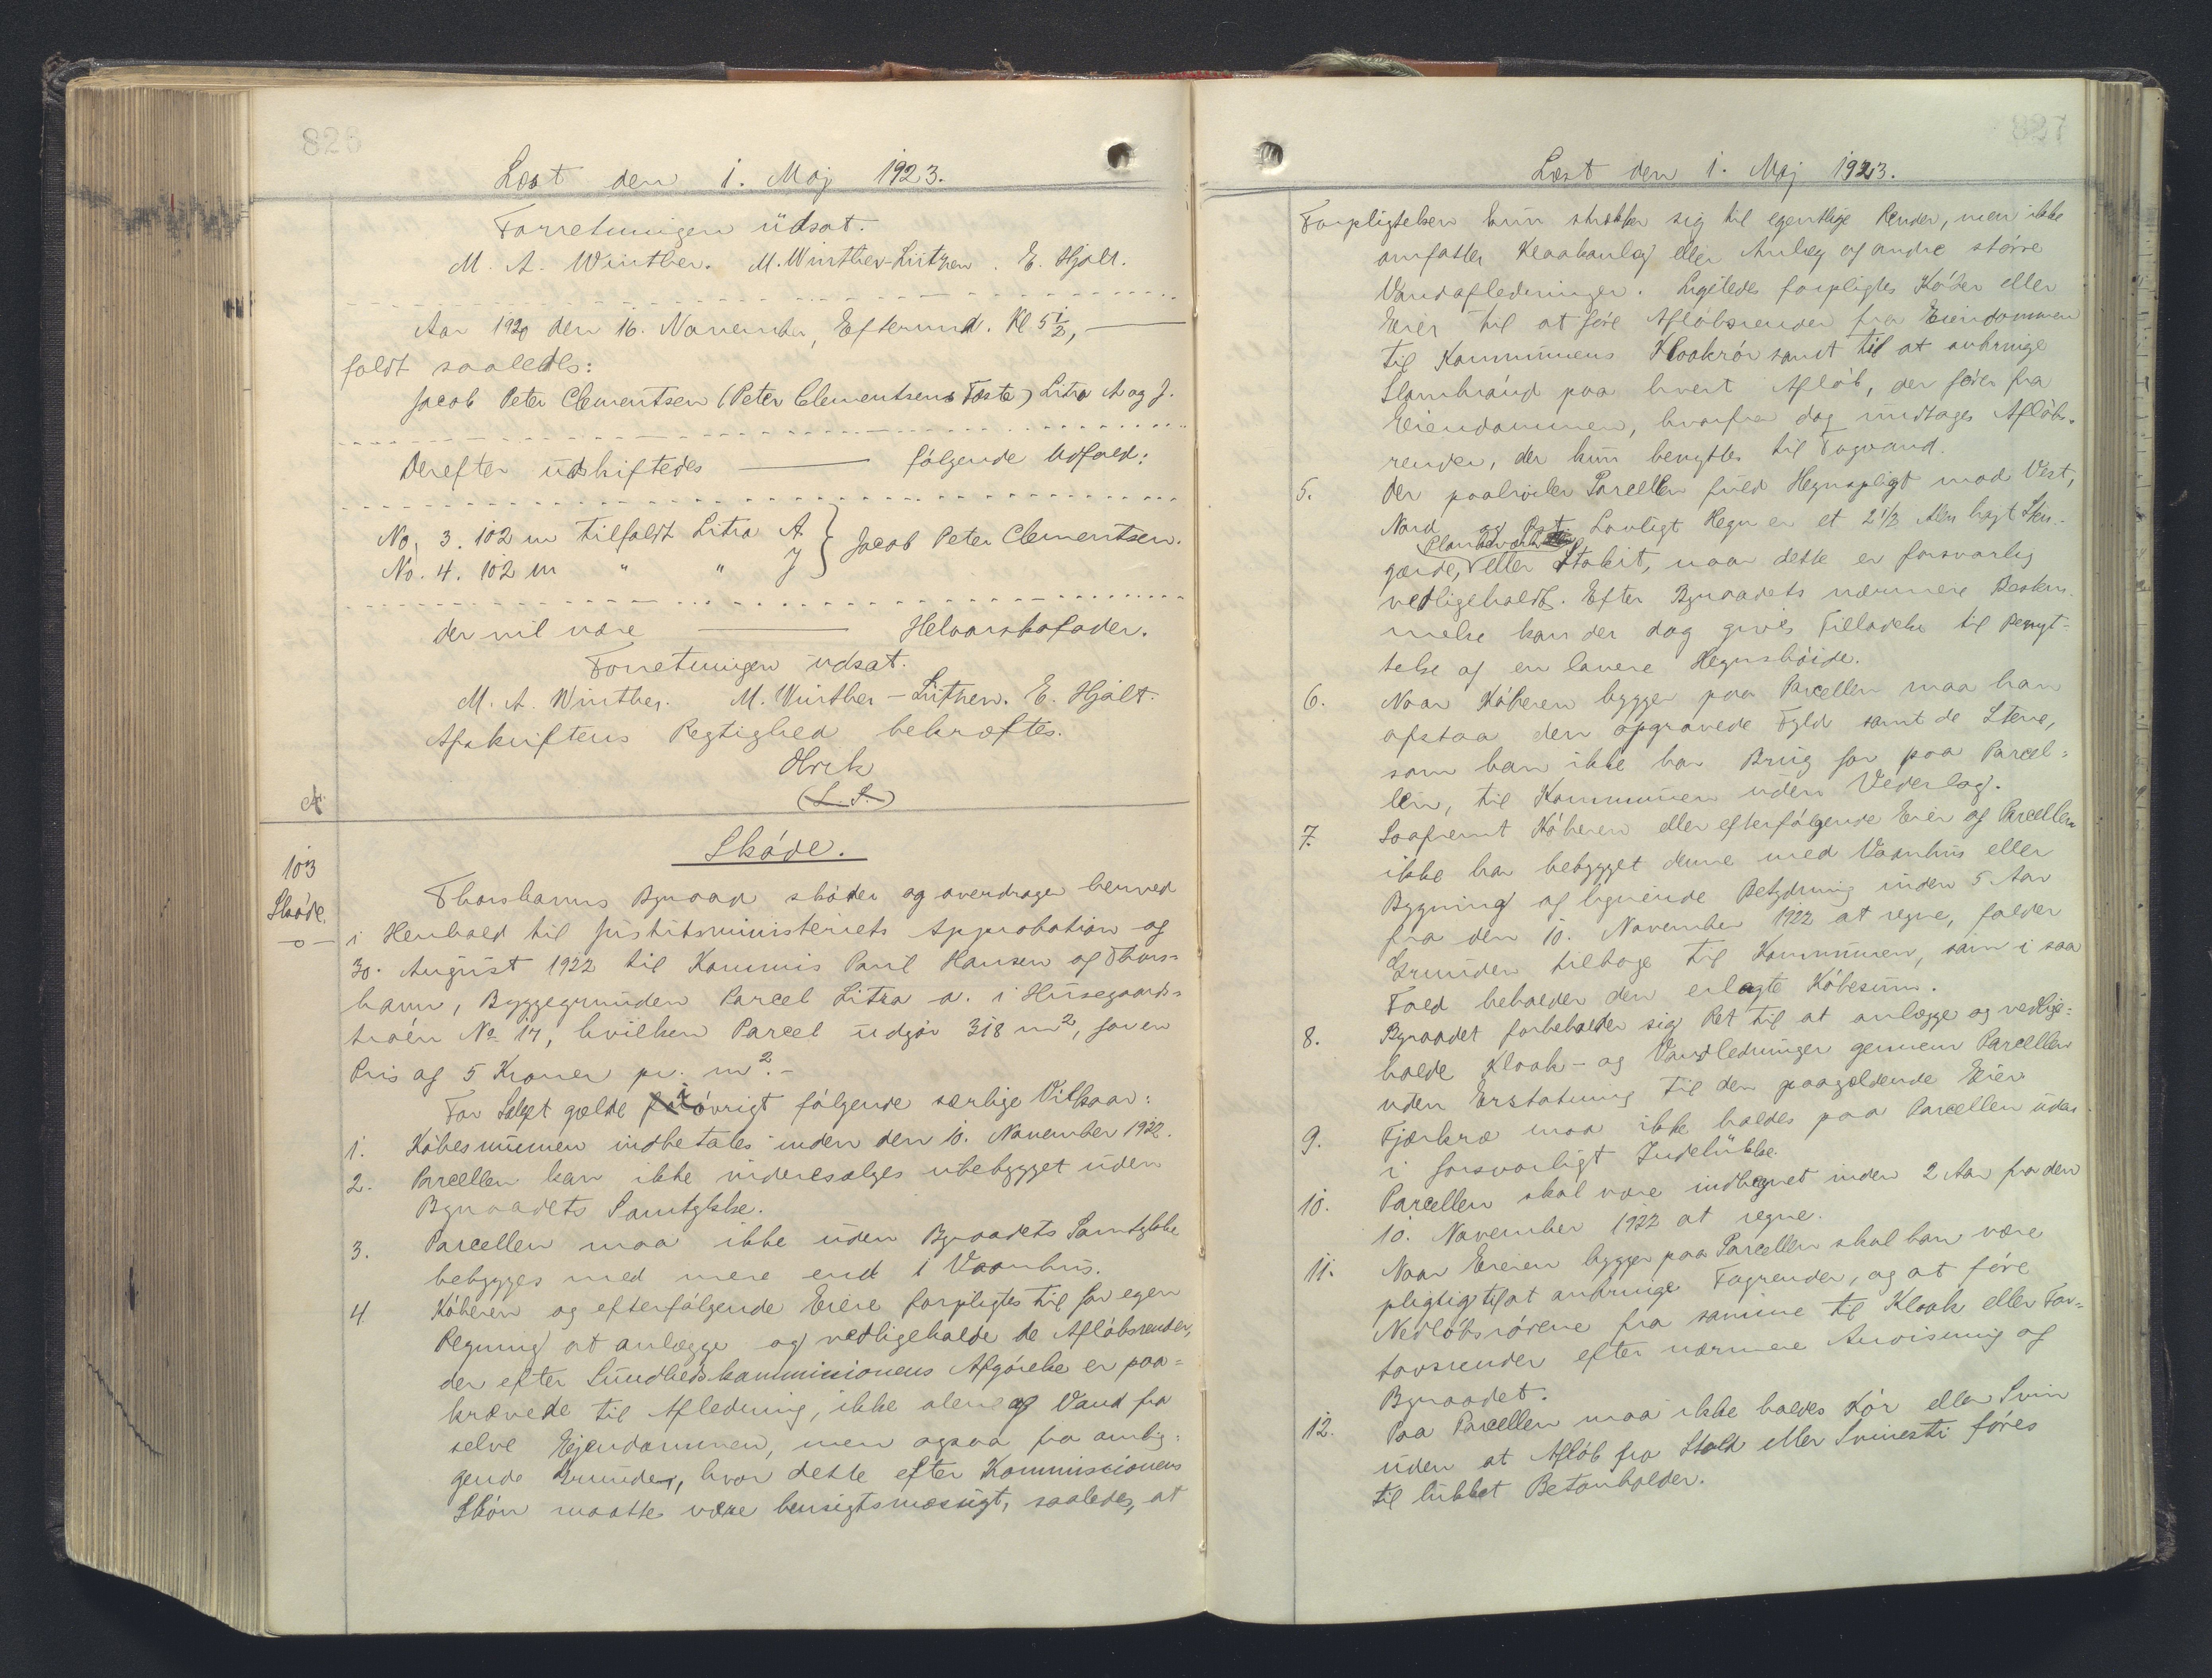 826
Læst den 1. Maj 1923.
Forretningen üdsat.
M. A. Winther. M. Winther-Lützen. E. Hjalt.
Aar 1920 den 16. November, Eftermd. Kl 5 1/2, —
foldt saaledes:
Jacob Peter Clementsen (Peter Clementsens Fæste) Litra A og J.
Derefter üdskiftedes — følgende Udfald:
No. 3. 102 m tilfaldt Litra A } Jacob Peter Clementsen.
No. 4. 102 m " " J
der vil være — Helaarskofoder.
Forretningen üdsat.
M. A. Winther. M. Winther-Lützen. E. Hjalt.
Afskriftens Rigtighed bekræftes.
(L. S.)
103
Skøde
-o-
Skøde.
Thorshavns Byraad skøder og overdrager herved
i Henhold til Jüstitsministeriets Approbation af
30. Aügüst 1922 til Kommis Poul Hansen af Thors-
havn, Byggegrunden Parcel Litra a. i Hüsegaards-
traøen No 17, hvilken Parcel üdgør 318 m2, for en
Pris af 5 Kroner pr. m2.-
For Salget gælde i øvrigt følgende særlige Vilkaar:
1. Købesummen indbetales inden den 10. November 1922.
2. Parcellen kan ikke videresælges übebygget üden
Byraadets Samtykke.
3. Parcellen maa ikke üden Byraadets Samtykke
bebygges med mere end 1 Vaanhüs.
4. Køberen og efterfølgende Eiere forpligtes til for egen
Regning at anlægge og vedligeholde de Afløbsrender,
der efter Sündhedskommissionens Afgørelse er paa-
krævede til Afledning, ikke alene af Vand fra
selve Ejendommen, men ogsaa fra omlig-
gende Grunde, hvor dette efter Kommissionens
Skøn maatte være hensigtsmæssigt, saaledes, at
827
Læst den 1. Maj 1923.
Forpligtelsen kün strækker sig til egentlige Render, men ikke
omfatter Kloakanlæg eller Anlæg af andre større
Vandafledninger. Ligeledes forpligtes Køber eller
Eier til at føre Afløbsrender fra Eiendommen
til Kommünens Kloakrør samt til at anbringe
Slambrønd paa hvert Afløb, der fører fra
Eiendommen, hvorfra dog ündtages Afløbs-
render, der kün benyttes til Tagvand.
5. Der paahviler Parcellen füld Hegnspligt mod Vest,
Nord og Øst. Lovligt Hegn er et 2 1/2 Alen højt Sten-
gærde, Plankeværk eller Stakit, naar dette er forsvarlig
vedligeholdt. Efter Byraadets nærmere Bestem-
melse kan der dog gives Tilladelse til Benyt-
telse af en lavere Hegnshøide.
6. Naar Køberen bygger paa Parcellen maa han
afstaa den opgravede Fyld samt de Stene,
som han ikke har Brüg for paa Parcel-
len, til Kommünen üden Vederlag.
7. Saafremt Køberen eller efterfølgende Eier af Parcellen
ikke har bebygget denne med Vaanhüs eller
Bygning af lignende Betydning inden 5 Aar
fra den 10. November 1922 at regne, falder
Grunden tilbage til Kommünen, som i saa
Fald beholder den erlagte Købesüm.
8. Byraadet forbeholder sig Ret til at anlægge og vedlige-
holde Kloak- og Vandledninger gennem Parcellen
uden Erstatning til den paagældende Eier.
9. Fjærkræ maa ikke holdes paa Parcellen üden
i forsvarligt Indelükke.
10. Parcellen skal være indhegnet inden 2 Aar fra den
10. November 1922 at regne.
11. Naar Eieren bygger paa Parcellen skal han være
pligtig til at anbringe Tagrender, og at føre
Nedløbsrørene fra samme til Kloak eller For-
tovsrender efter nærmere Anvisning af
Byraadet.
12. Paa Parcellen maa ikke holdes Kør eller Svin
üden at Afløb fra Stald eller Svinesti føres
til lükket Betonholder.